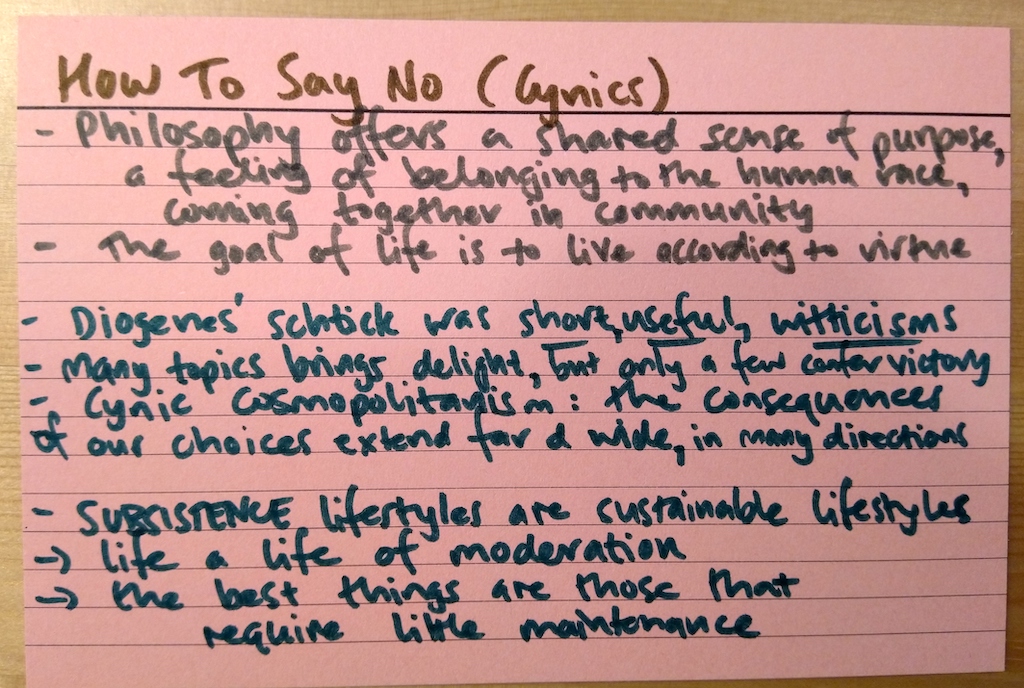 How To Say No (Cynics)
- Philosophy offers a shared sense of purpose,
a feeling of belonging to the human race,
coming together in community
- The goal of life is to live according to virtue
- Diogenes' schtick was short, useful, witticisms
- Many topics brings delight, but only a few confer victory
- Cynic Cosmopolitanism: the consequences
of our choices extend far & wide, in many directions
- SUBSISTENCE lifestyles are sustainable lifestyles
→ life a life of moderation
→ the best things are those that
require little maintenance